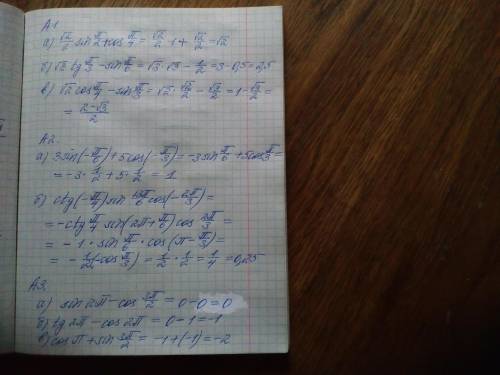 А1.
а) √2/2 sin π/2 + cos π/4 = √2/2 · 1 + √2/2 = √2
б) √3 tg π/3 - sin π/6 = √3 · √3 - 1/2 = 3 - 0,5 = 2,5
в) √2 cos π/4 - sin π/3 = √2 · √2/2 - √3/2 = 1 - √3/2 =
= 2-√3/2
А2.
а) 3 sin(-π/6) + 5 cos(-π/3) = -3 sin π/6 + 5 cos π/3 =
= -3 · 1/2 + 5 · 1/2 = 1
б) ctg(-π/4) sin 13π/6 cos(-2π/3) =
= -ctg π/4 sin(2π + π/6) cos 2π/3 =
= -1 · sin π/6 · cos(π - π/3) =
= -1/2(-cos π/3) = 1/2 · 1/2 = 1/4 = 0,25
А3.
а) sin 2π - cos 3π/2 = 0 - 0 = 0
б) tg 2π - cos 2π = 0 - 1 = -1
в) cos π + sin 3π/2 = -1 + (-1) = -2